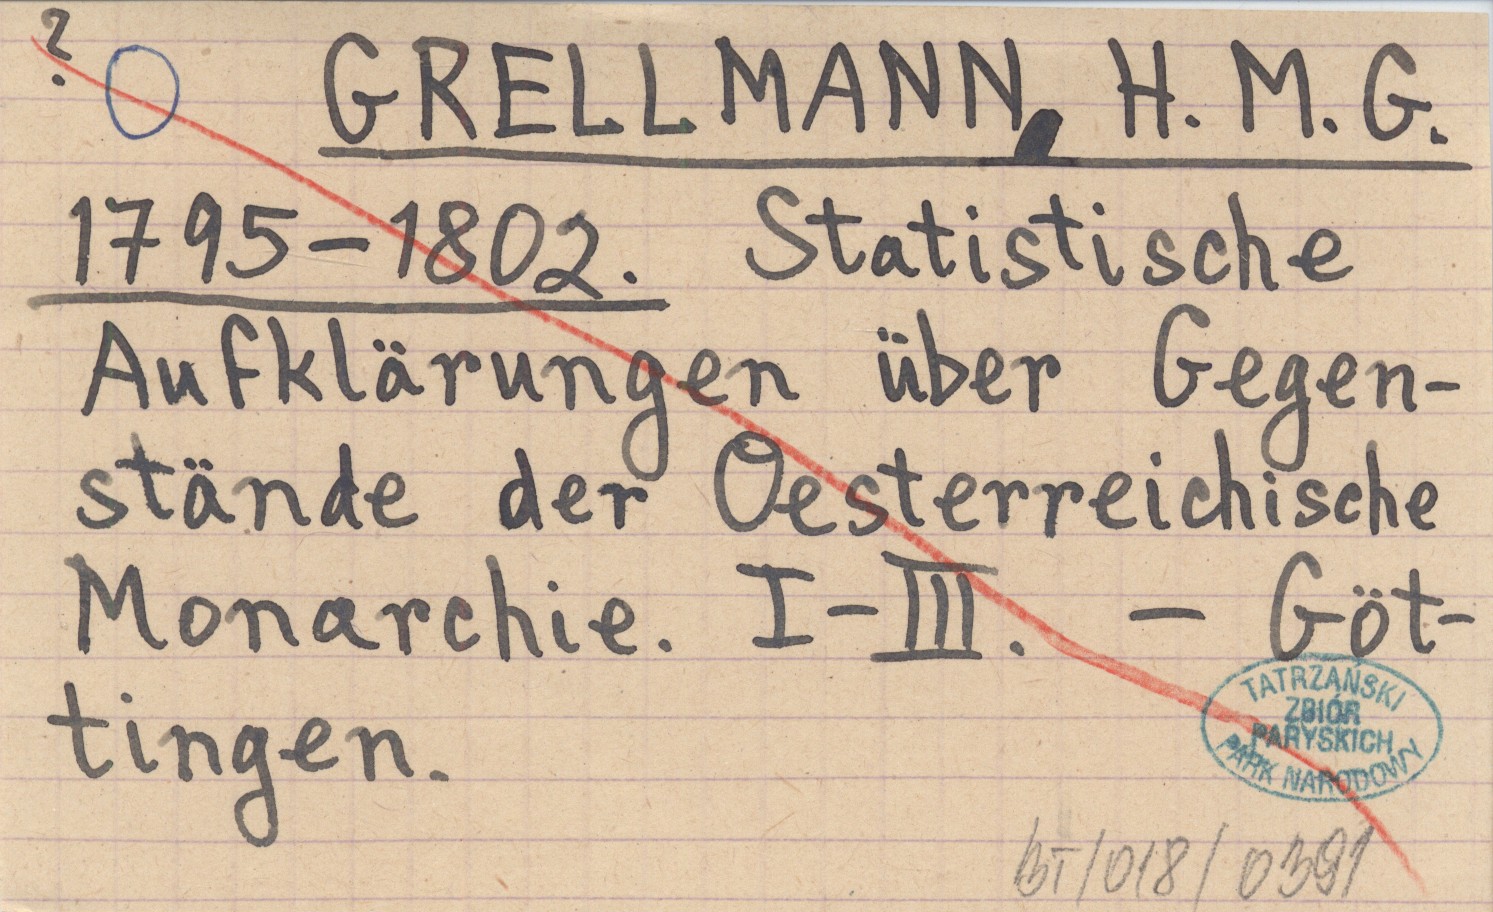 ?
GRELLMANN, H. M. G.
1795-1802. Statistische
Aufklärungen über Gegen-
stände der Oesterreichische
Monarchie. I-III. - Göt-
tingen.
TATRZAŃSKI
ZBIÓR
PARYSKICH
PARK NARODOWY
BT/018/0391